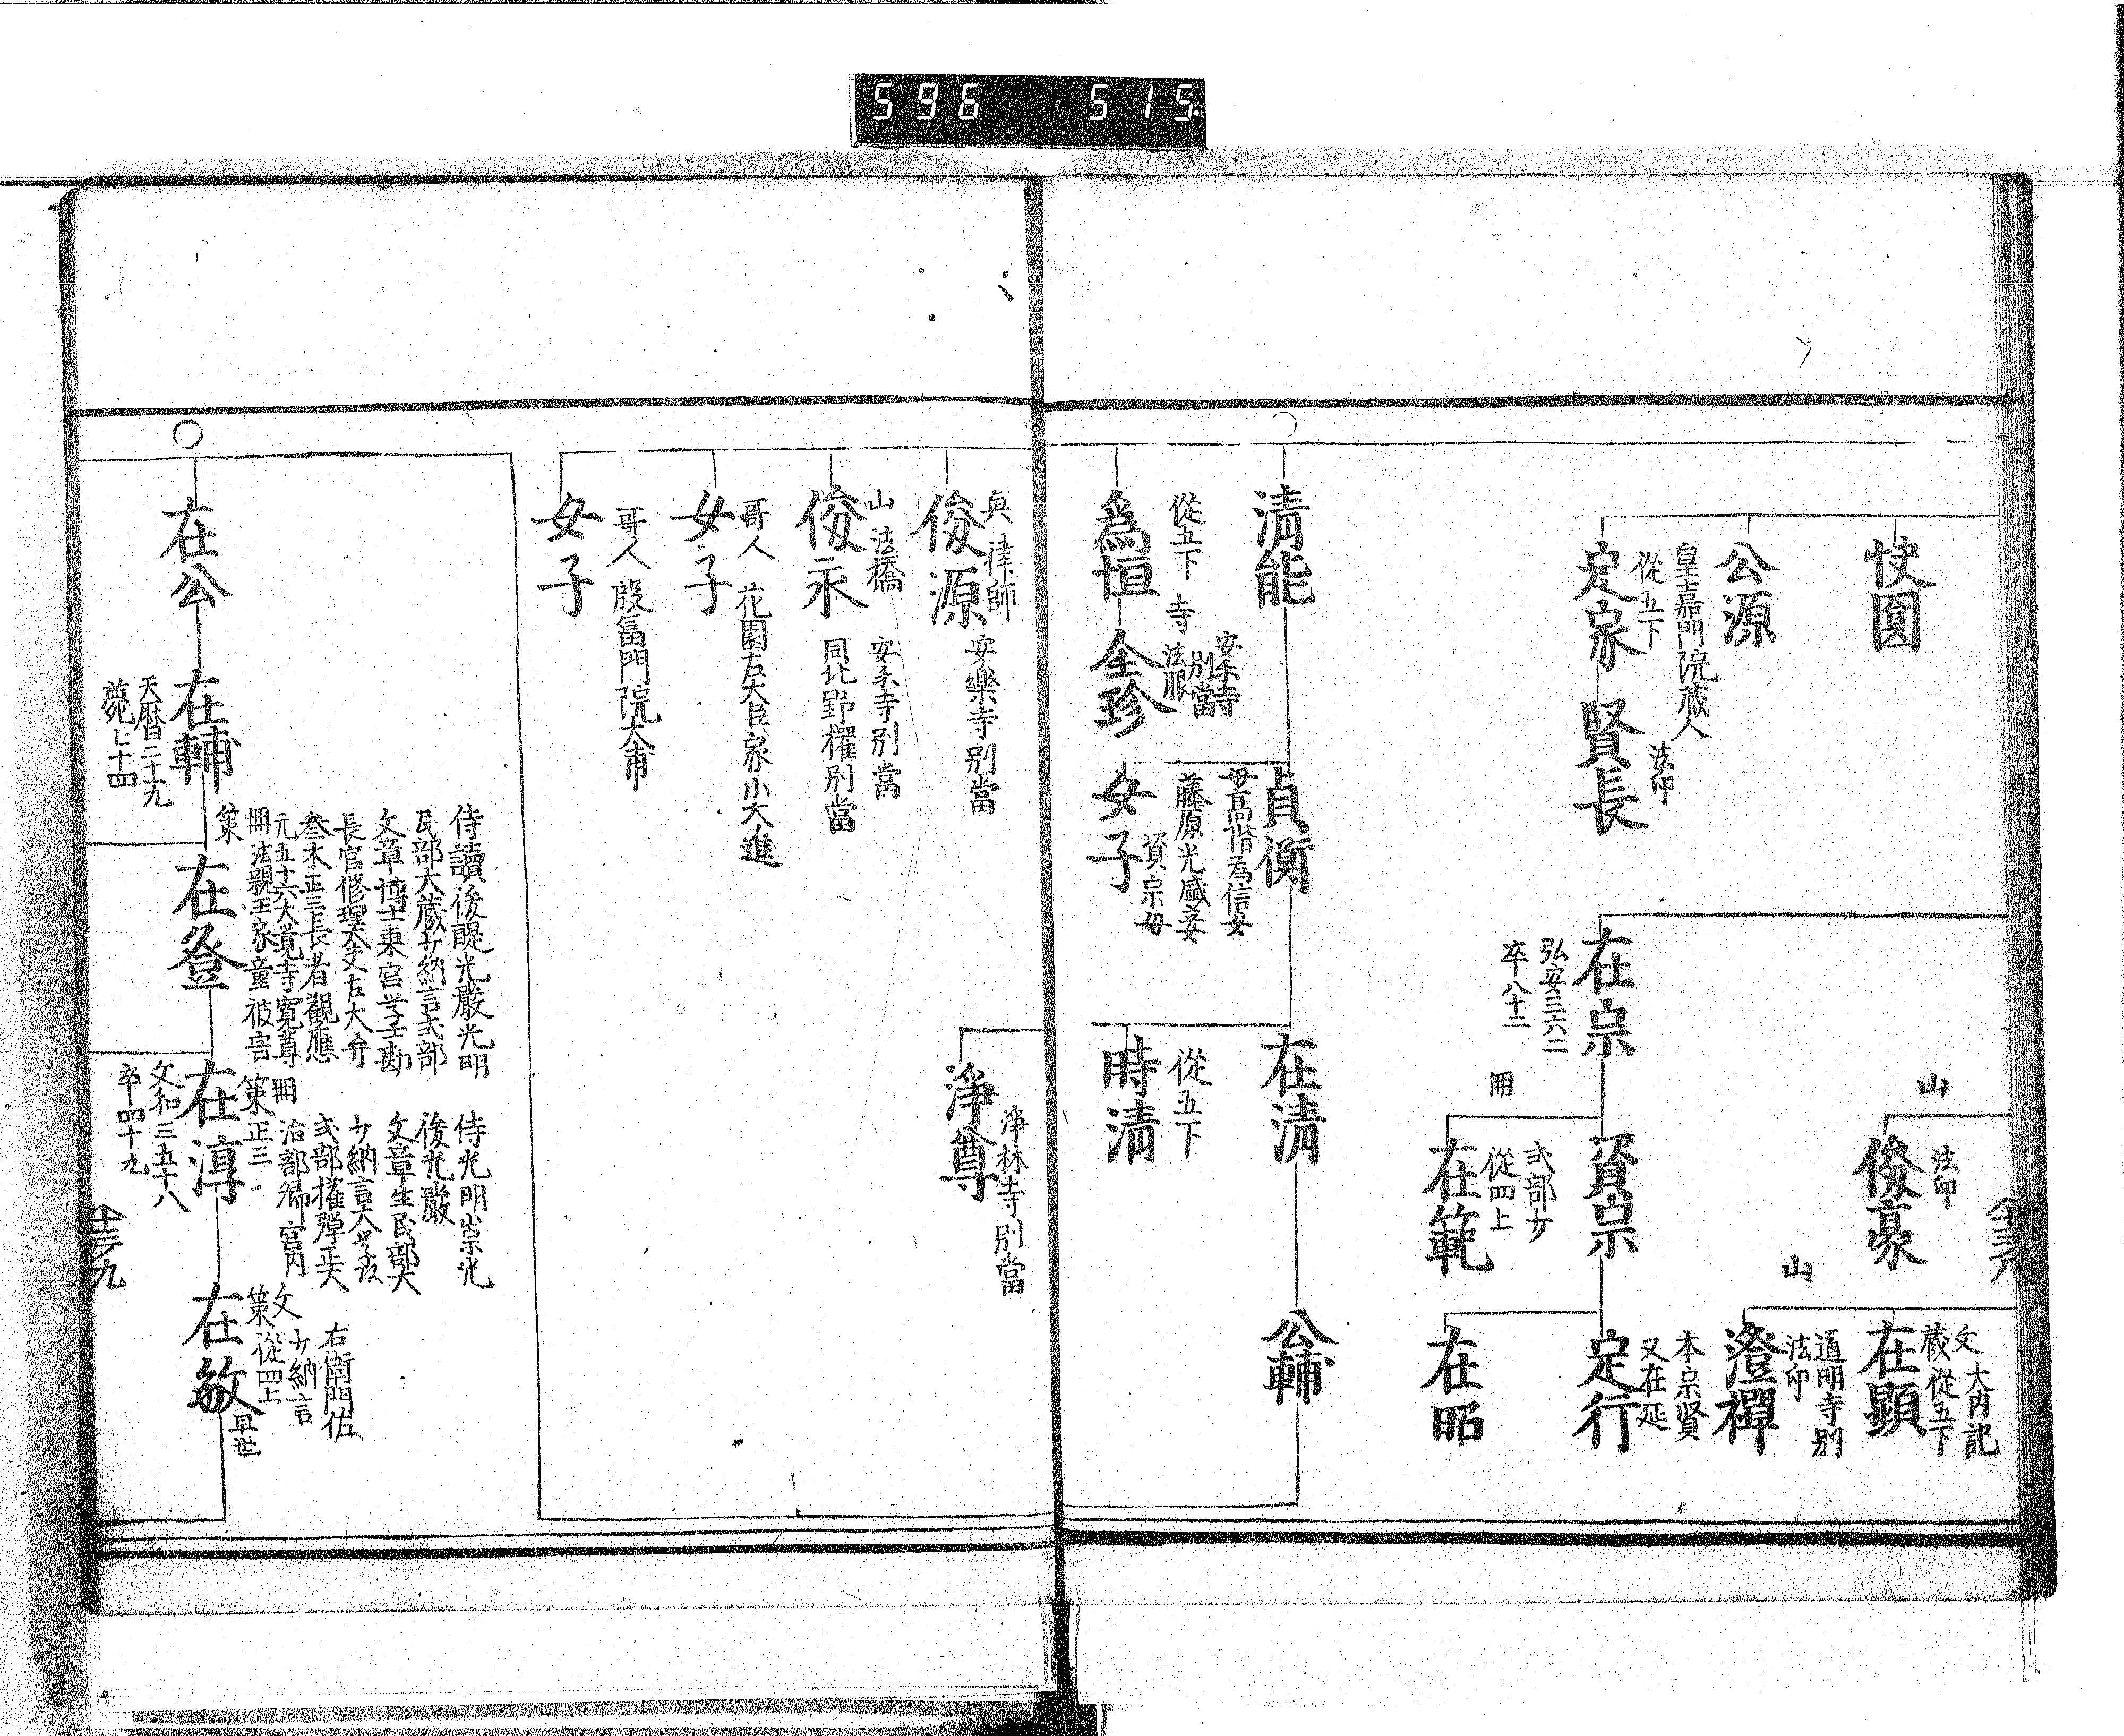 596 515.
快圓
公源
皇嘉門院蔵人
從五下
定家
賢長
法印
在宗
弘安三六二
卒八十二
山
法印
俊豪
冊
資宗
式部少
從四上
在範
文 大内記
蔵 從五下
在顕
山
道明寺別
法印
澄禪
本宗賢
又在延
定行
在昭
清能
從五下
為恒
安樂寺
別當
寺 法眼
全珍
貞衡
母高階為信女
女子
藤原光盛妾
資宗母
在清
從五下
時清
公輔
律師
俊源
安樂寺別當
山 法橋
俊永
安樂寺別當
同北野權別當
哥人 花園左大臣家小大進
女子
哥人 殷富門院大輔
女子
淨林寺別當
淨尊
在公
在輔
天暦二十九
薨七十四
侍讀後醍光嚴光明
民部大蔵少納言式部
文章博士東宮学士勘
長官修理大夫右大弁
参木正三長者觀應
元五十六大覚寺寛尊
冊 法親王家童被害
策
在登
侍光明崇光
後光嚴
文章生民部大
少納言大学頭
式部權弾正大
冊 治部卿宮内
策 正三
在淳
文和三五十八
卒四十九
右衛門佐
文 少納言
策 從四上
在敏
早世